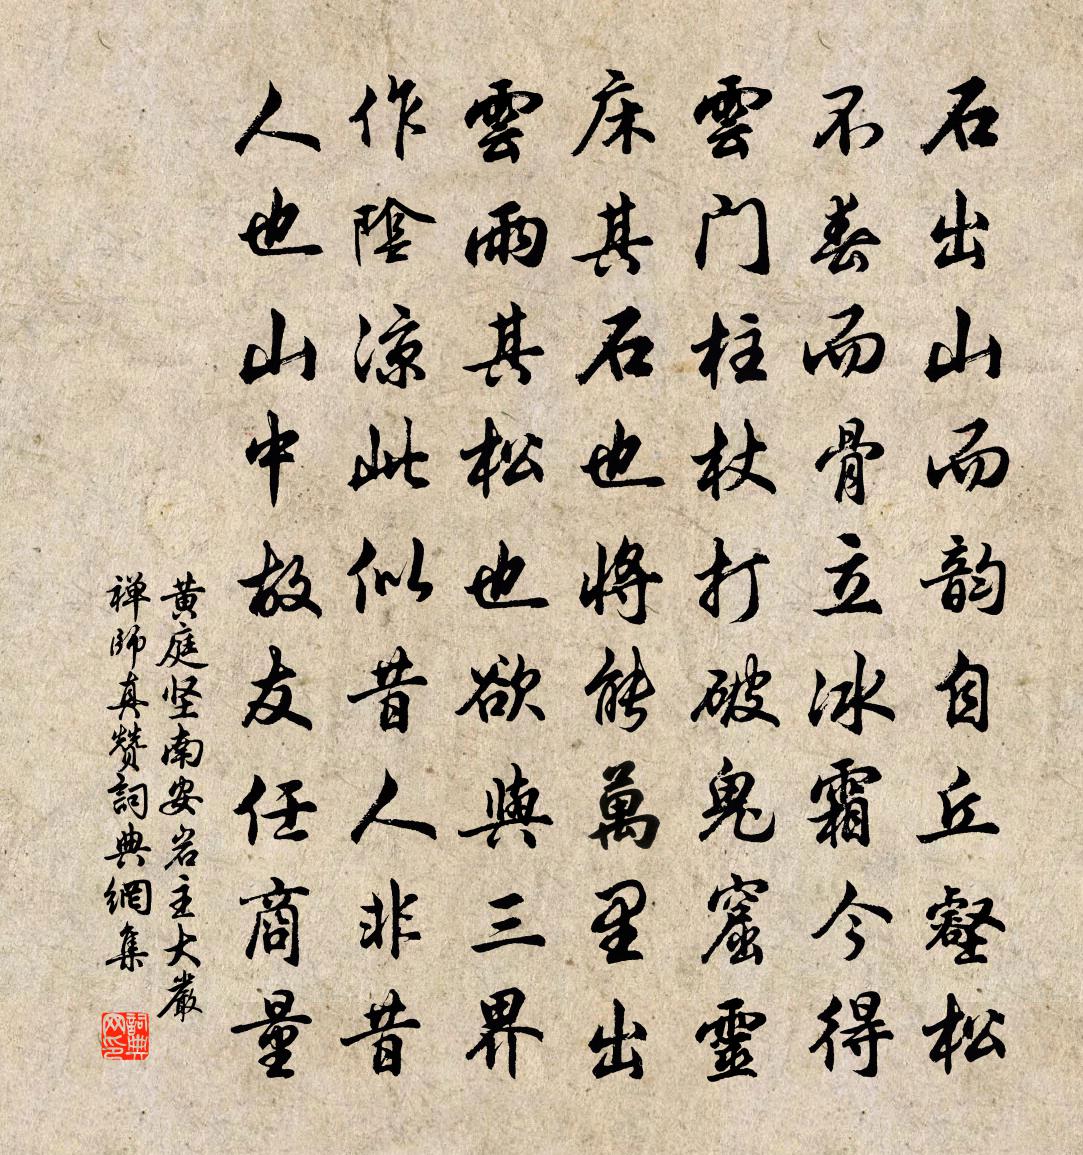 石出山而韵自丘壑松
不春而骨立冰霜今得
雲门柱杖打破鬼窟靈
床其石也將能萬里出
雲雨其松也欲與三界
作陰凉此似昔人非昔
人也山中故友任商量
黄庭坚南安岩主大嚴
禅師真赞詞典網集
詞典网印